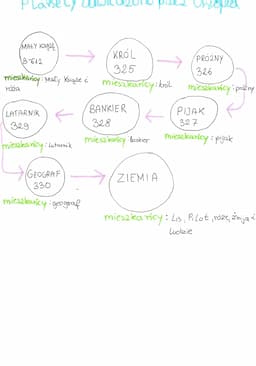 Planety odwiedzone przez
MAŁY KSIĄŻĘ
B-612
mieszkańcy: Mały Książę i
róża
KRÓL
325
mieszkańcy: król
PRÓŻNY
326
mieszkańcy: próżny
LATARNIK
329
mieszkańcy: latarnik
BANKIER
328
mieszkańcy: bankier
PIJAK
327
mieszkańcy: pijak
GEOGRAF
330
mieszkańcy: geograf
ZIEMIA
mieszkańcy: Lis, Pilot, róże, żmija i
ludzie